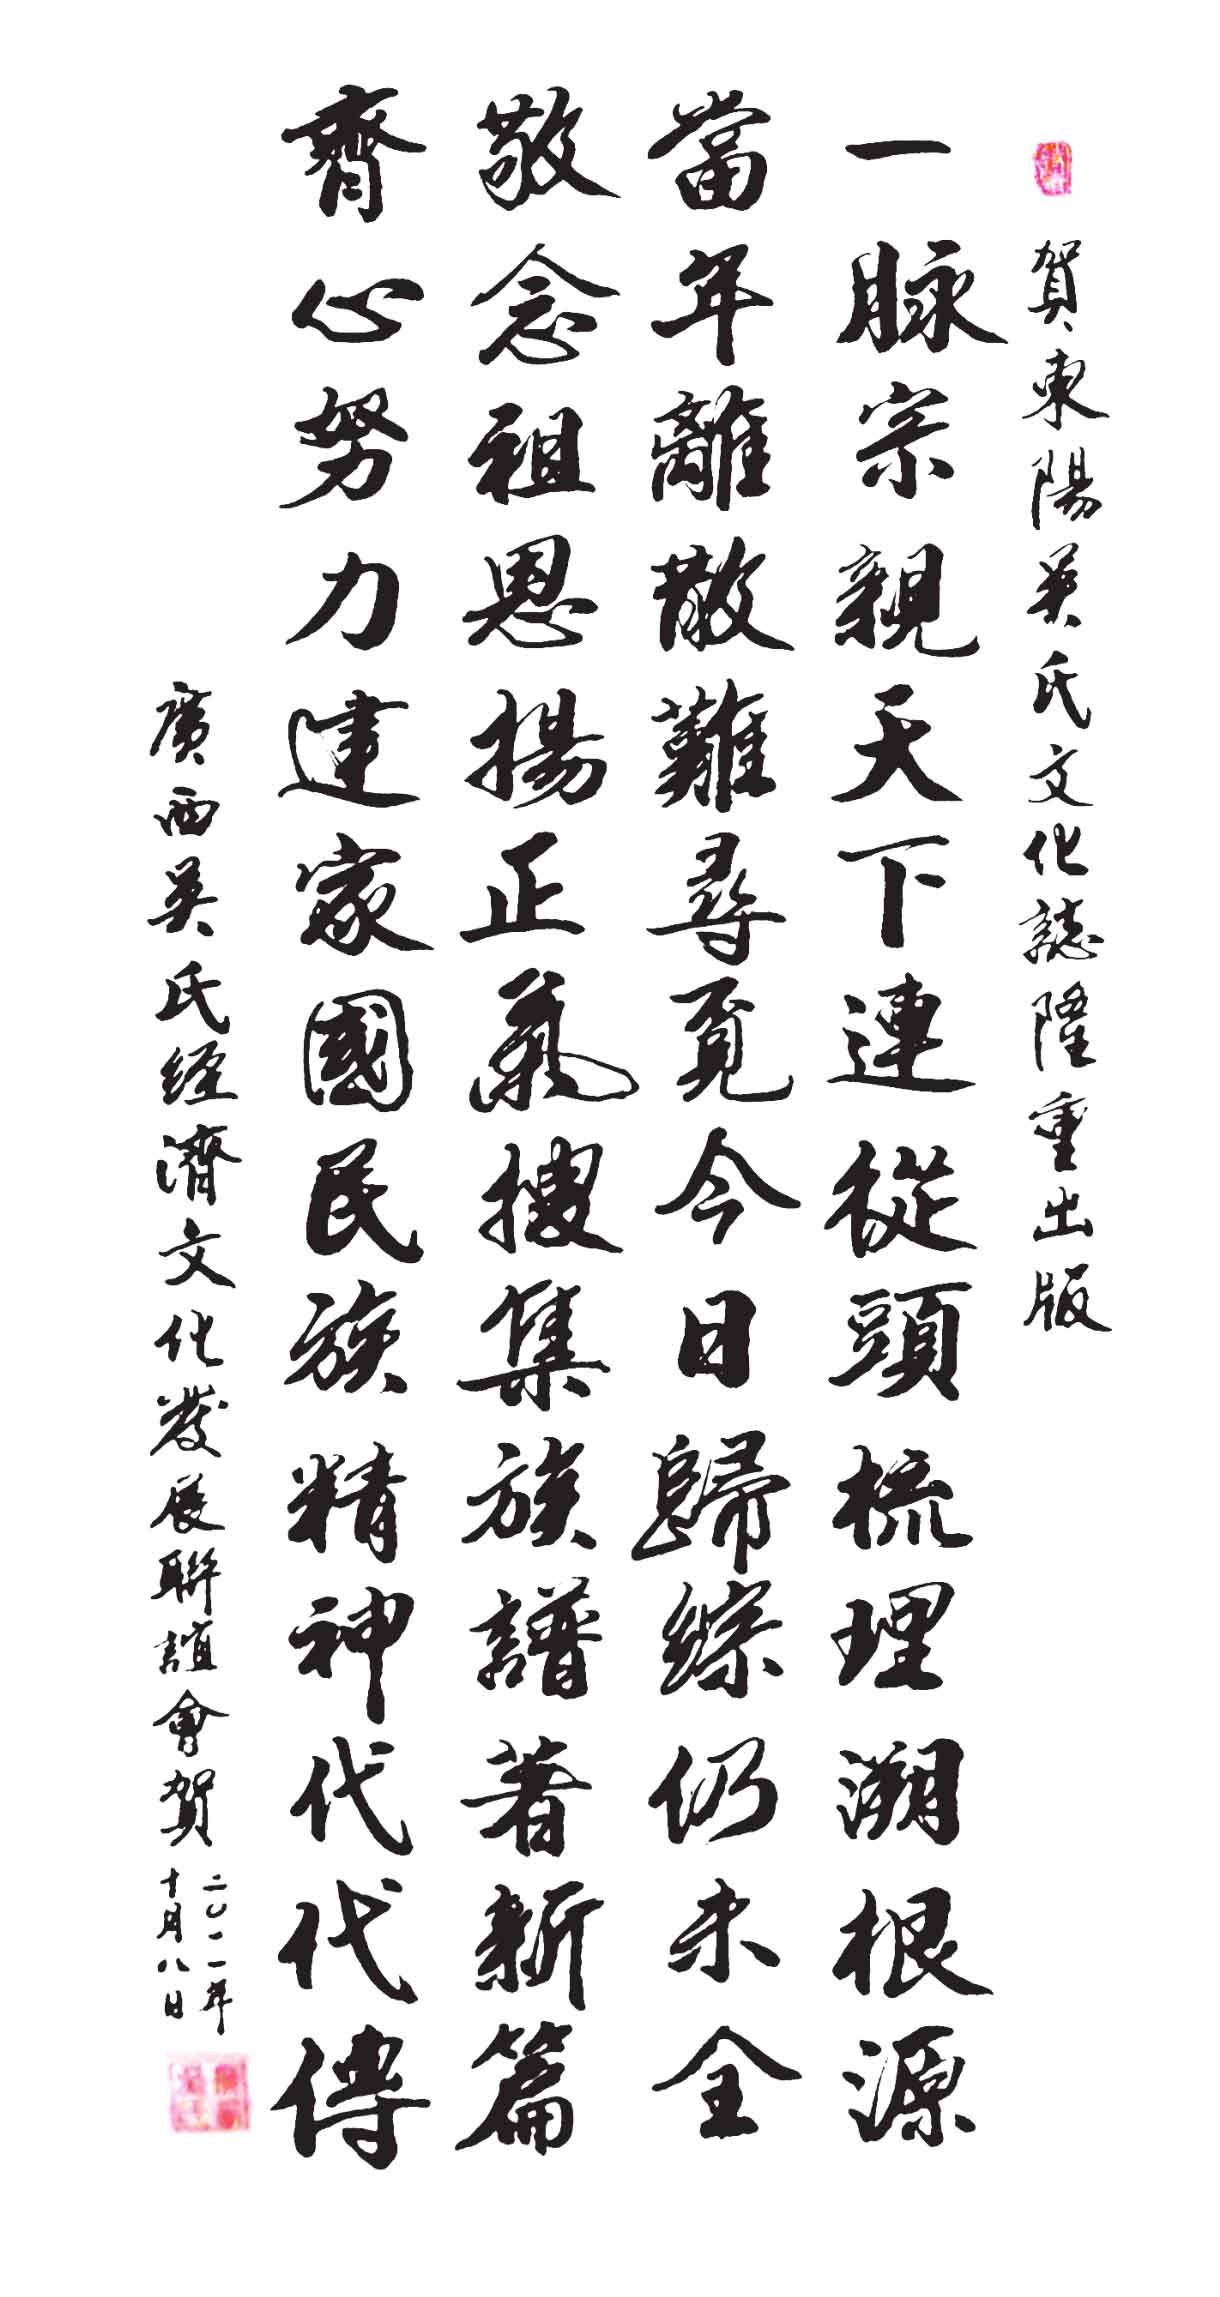 賀東陽吳氏文化誌隆重出版
一脉宗親天下連從頭梳理溯根源
當年離散難尋覓今日歸綜仍未全
敬念祖恩揚正氣搜集族譜著新篇
齊心努力建家國民族精神代代傳
廣西吳氏经濟文化發展聯誼會賀
二〇一一年
十月八日